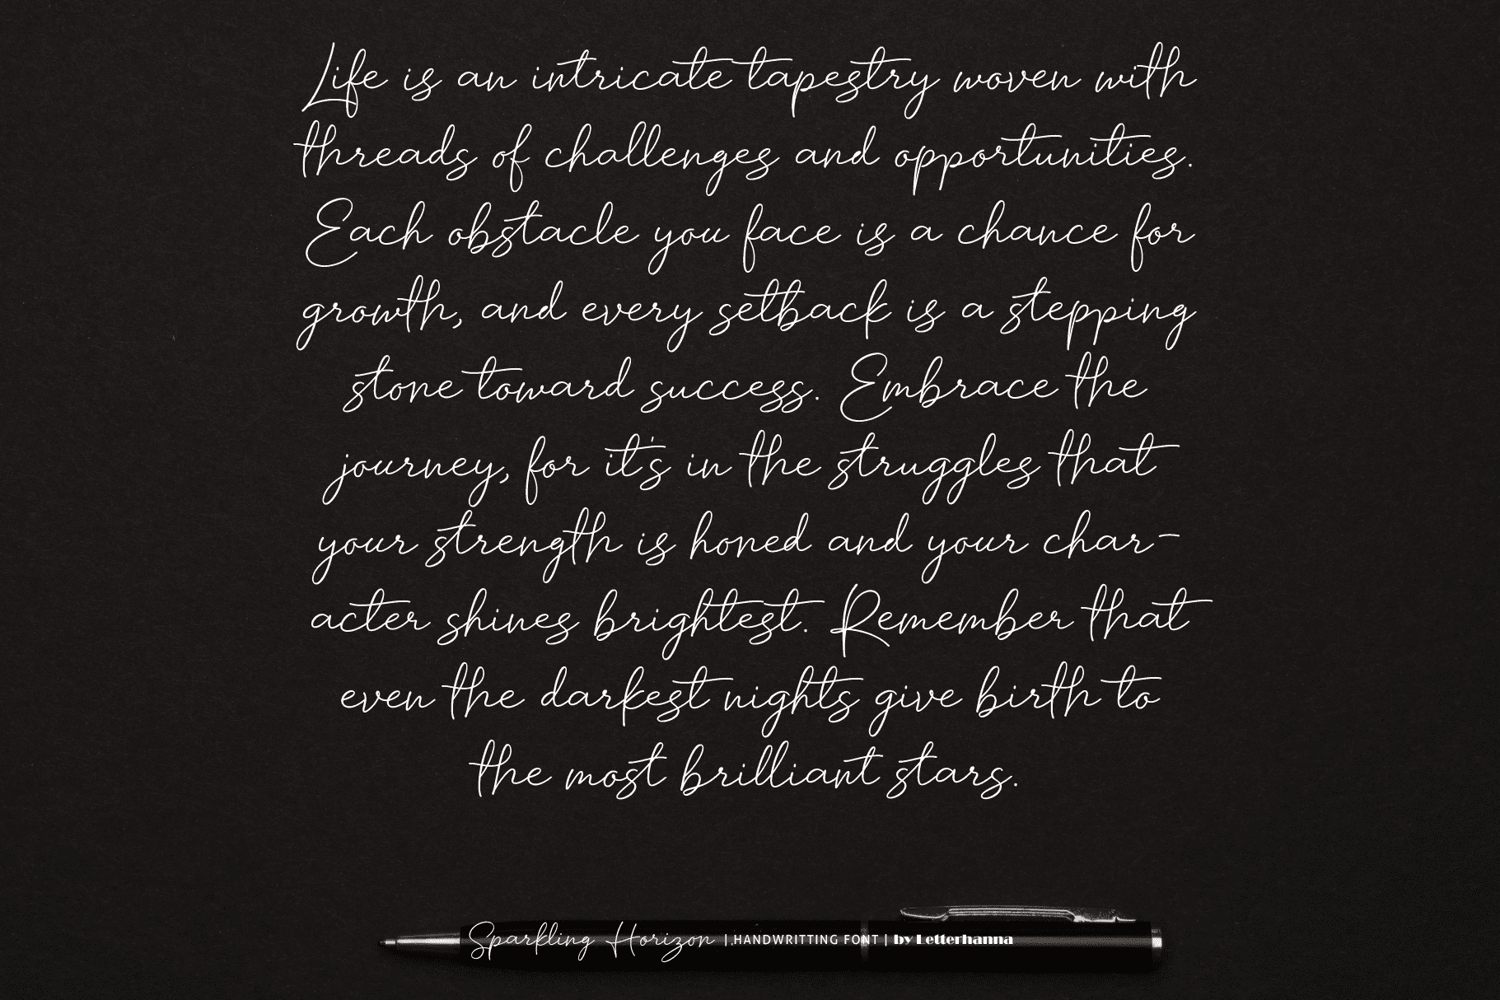 Life is an intricate tapestry woven with
threads of challenges and opportunities.
Each obstacle you face is a chance for
growth, and every setback is a stepping
stone toward success. Embrace the
journey, for it's in the struggles that
your strength is honed and your char-
acter shines brightest. Remember that
even the darkest nights give birth to
the most brilliant stars.
Sparkling Horizon | HANDWRITTING FONT | by Letterhanna